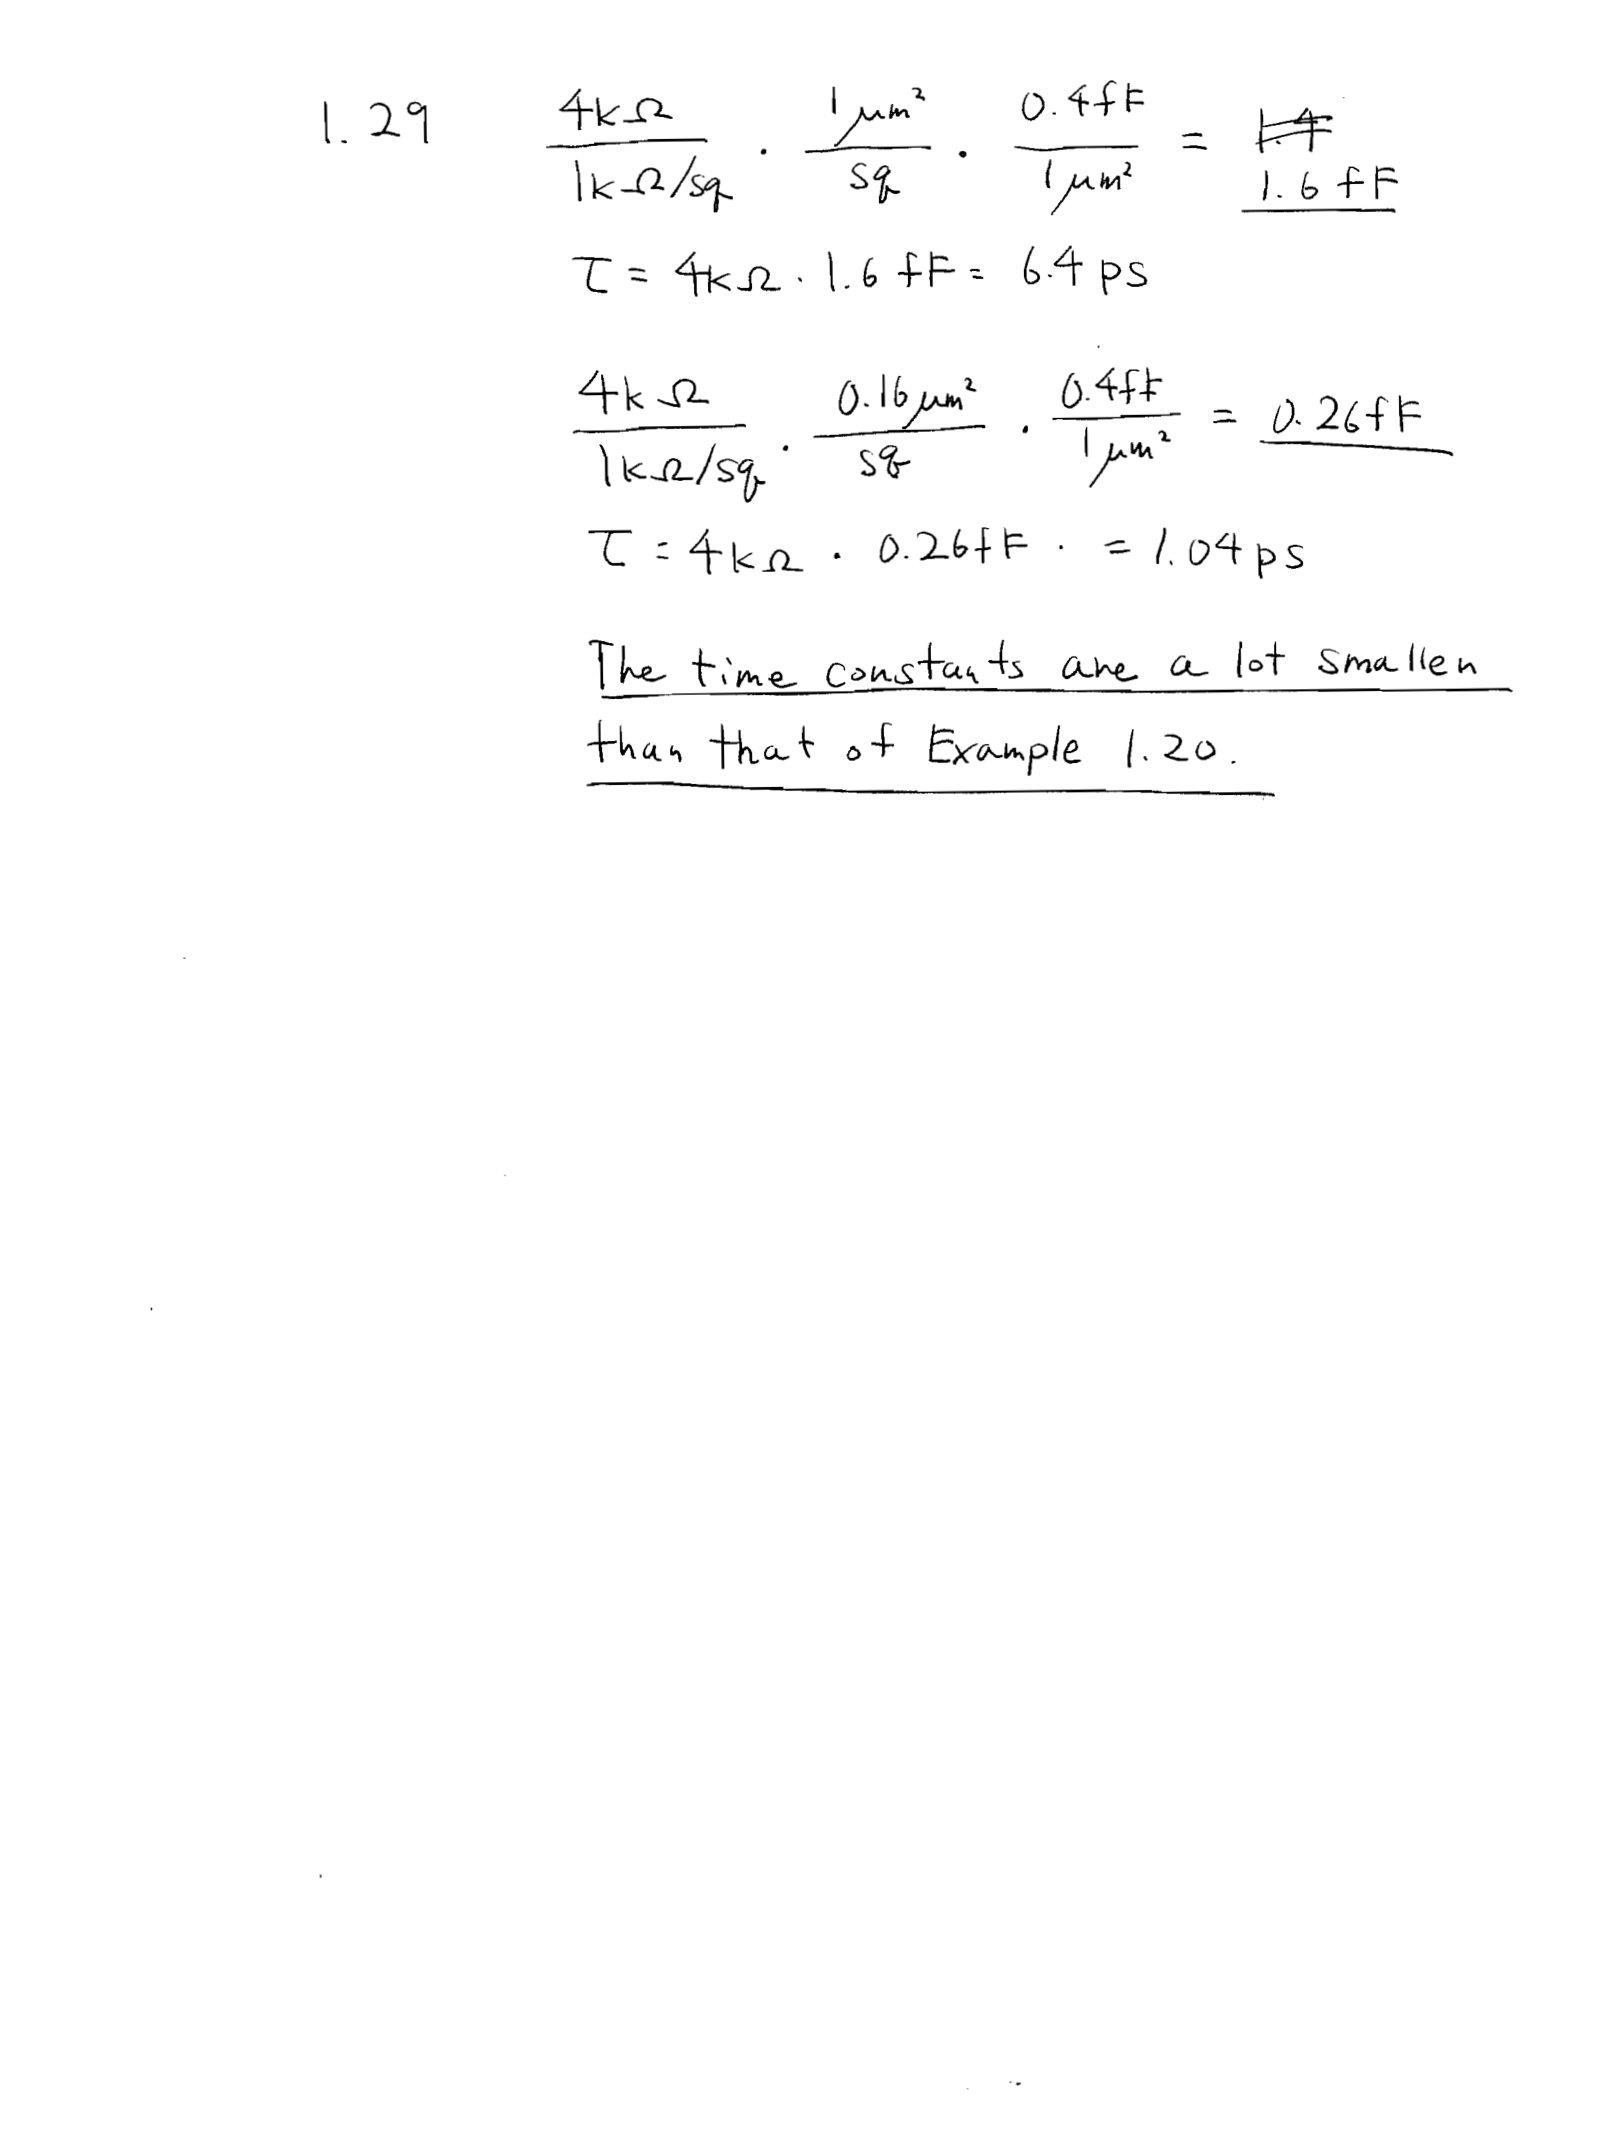 1.29 4kΩ / 1kΩ/sq · 1 μm² / sq · 0.4fF / 1 μm² = 1.4
1.6 fF
τ = 4kΩ · 1.6 fF = 6.4 ps
4kΩ / 1kΩ/sq · 0.16 μm² / sq · 0.4fF / 1 μm² = 0.26fF
τ = 4kΩ · 0.26fF · = 1.04 ps
The time constants are a lot smaller
than that of Example 1.20.